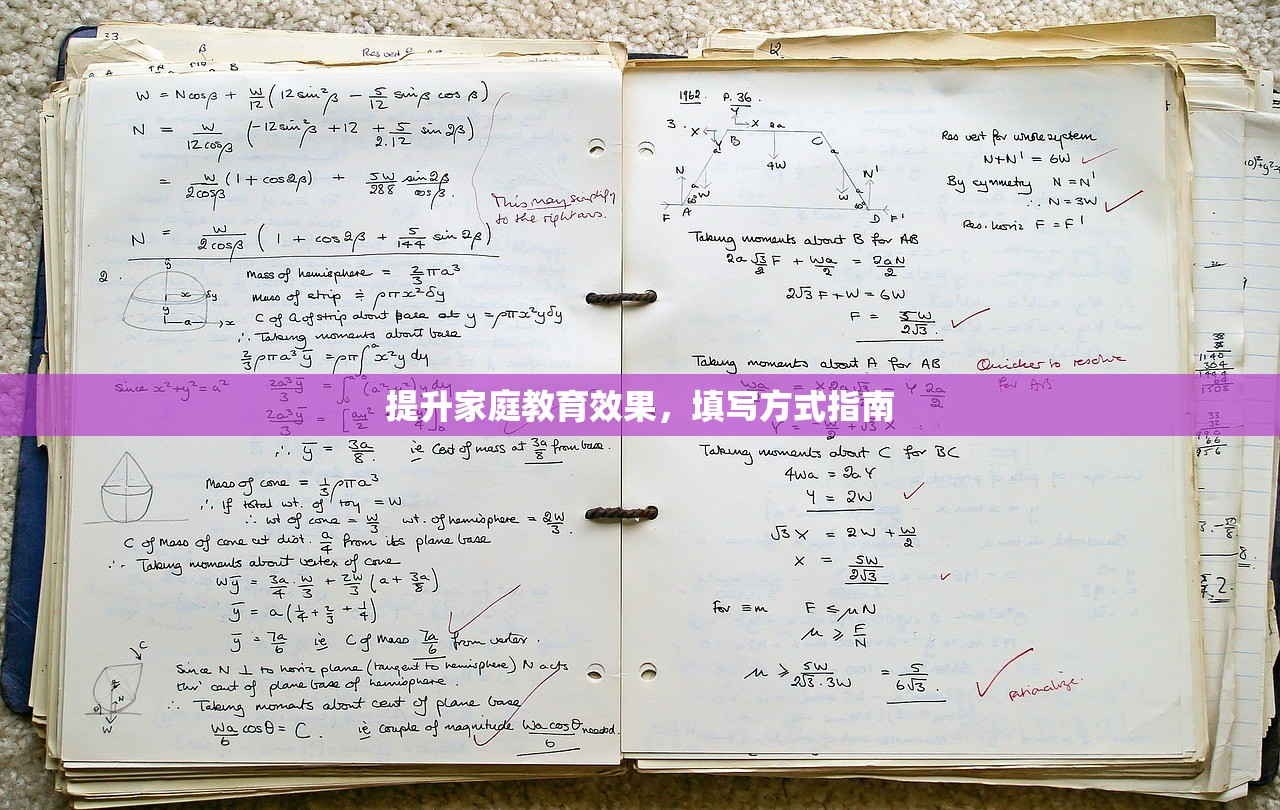 33.
W = N cos β + W/12 (12 sin²β − 5/12 sin β cos β)
N = W/12 cos β (−12 sin²β + 12 + 5/2.12 sin 2β)
= W/2cos β (1 + cos 2β) + 5W/288 sin 2β/cos β.
This may simplify
to the right ans.
N = W/2cos β (1 + cos 2β + 5/144 sin 2β)
2.
Mass of hemisphere = 2/3 πa³
Mass of strip ≑ ρπx²δy
C of G of strip about base at y = ρπx²yδy
∴ Taking moments about base
2/3 ρπa³ȳ = ρπ∫ₒᵃ x²y dy
since x²+y² = a²
提升家庭教育效果，填写方式指南
∴ ȳ = 3a/8. ie Cent of mass at 3a/8 from base.
Mass of cone = 1/3 ρπa³
∴ If total wt. of toy = W
∴ wt of cone = W/3 wt. of hemisphere = 2W/3.
C of Mass of cone at dist. a/4 from its plane base
∴ Taking moments about vertex of cone
Wȳ = 3a/4 · W/3 + 2W/3 (a + 3a/8)
ȳ = a(1/4 + 2/3 + 1/4)
ȳ = 7a/6 ie C of Mass 7a/6 from vertex.
Since N ⊥ to horiz plane (tangent to hemisphere) N acts
thro' cent of plane base of hemisphere.
∴ Taking moments about cent of plane base
Wa/6 cos θ = C. ie couple of magnitude Wa cos θ/6 needed.
1962. P. 36.
3.
Res vert for whole system
N+N' = 6W
By symmetry N = N'
∴ N = 3W
Res. horiz F = F'
Taking moments about B for AB
2a √3/2 F + Wa/2 = 2aN/2
2√3 F + W = 6W
F = 5W/2√3.
Taking moments about A for AB
Quicker to resolve
for AB
Taking moments about C for BC
4Wa = 2aY
Y = 2W
√3 X = 2W + W/2
X = 5W/2√3
For ≡m F ≤ μN
μ ≥ F/N
μ ≥ 5W/2√3 · 3W = 5/6√3.
rationalize.